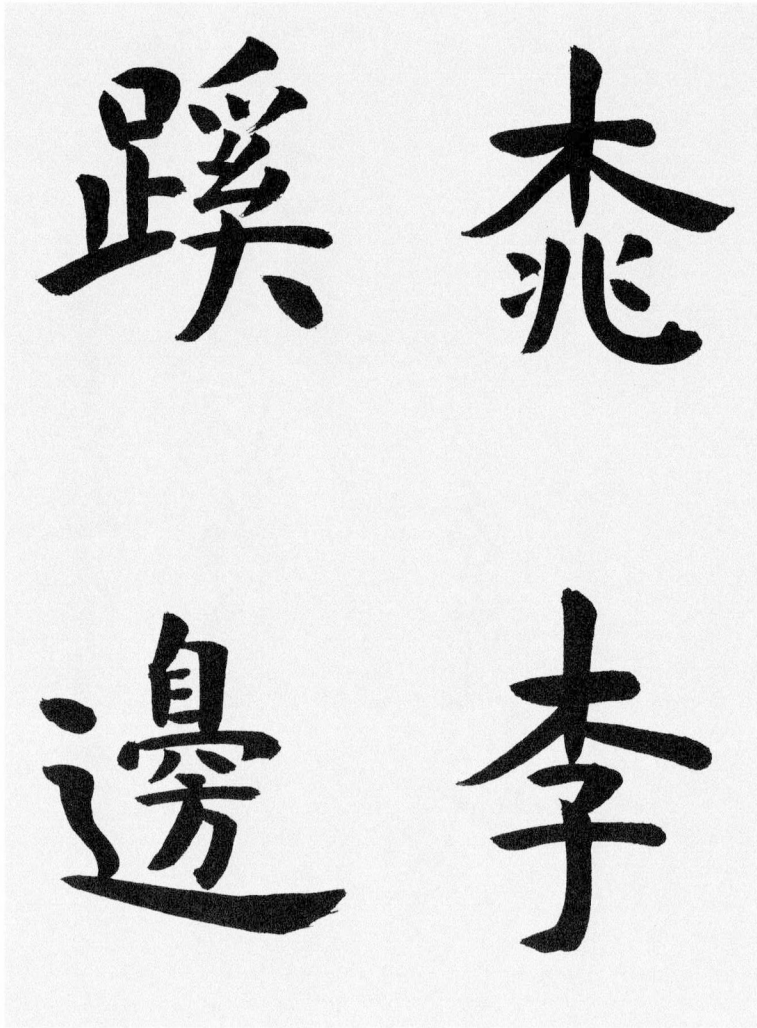 桃李
蹊邊